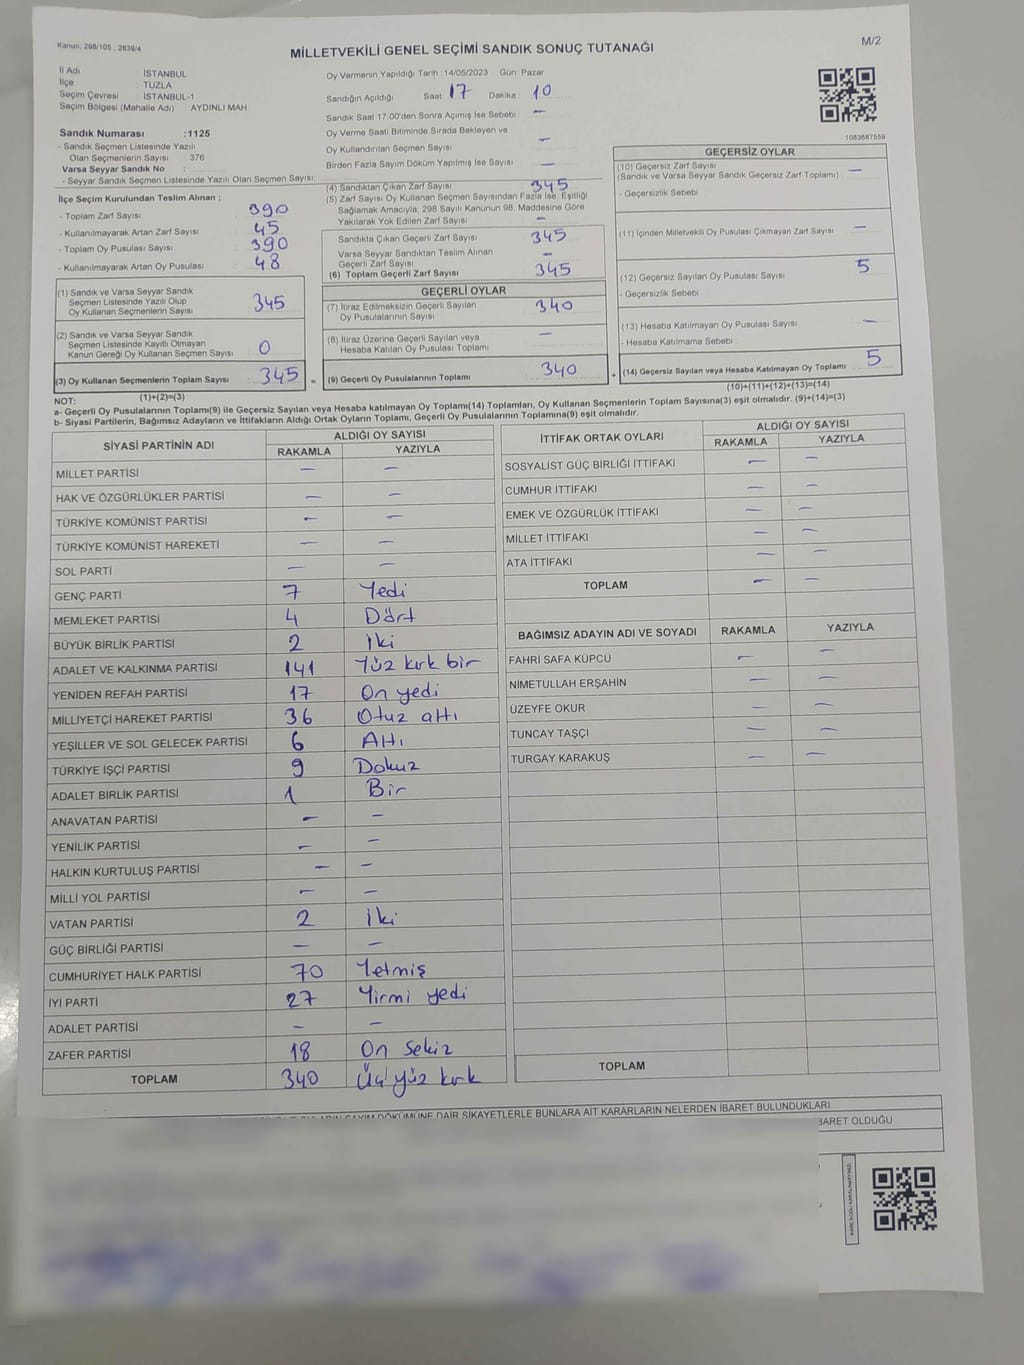 Kanun, 298/105 , 2839/4
M/2
MİLLETVEKİLİ GENEL SEÇİMİ SANDIK SONUÇ TUTANAĞI
İl Adı : İSTANBUL
İlçe : TUZLA
Seçim Çevresi : İSTANBUL-1
Seçim Bölgesi (Mahalle Adı) : AYDINLI MAH.
Sandık Numarası :1125
- Sandık Seçmen Listesinde Yazılı
Olan Seçmenlerin Sayısı : 376
Varsa Seyyar Sandık No :
- Seyyar Sandık Seçmen Listesinde Yazılı Olan Seçmen Sayısı:
İlçe Seçim Kurulundan Teslim Alınan ;
- Toplam Zarf Sayısı : 390
- Kullanılmayarak Artan Zarf Sayısı : 45
- Toplam Oy Pusulası Sayısı : 390
- Kullanılmayarak Artan Oy Pusulası : 48
(1) Sandık ve Varsa Seyyar Sandık
Seçmen Listesinde Yazılı Olup
Oy Kullanan Seçmenlerin Sayısı 345
(2) Sandık ve Varsa Seyyar Sandık
Seçmen Listesinde Kayıtlı Olmayan
Kanun Gereği Oy Kullanan Seçmen Sayısı 0
(3) Oy Kullanan Seçmenlerin Toplam Sayısı 345 =
(1)+(2)=(3)
Oy Vermenin Yapıldığı Tarih :14/05/2023 Gün: Pazar
Sandığın Açıldığı Saat: 17 Dakika : 10
Sandık Saat 17:00'den Sonra Açılmış İse Sebebi : —
Oy Verme Saati Bitiminde Sırada Bekleyen ve
Oy Kullandırılan Seçmen Sayısı : —
Birden Fazla Sayım Döküm Yapılmış İse Sayısı : —
(4) Sandıktan Çıkan Zarf Sayısı 345
(5) Zarf Sayısı Oy Kullanan Seçmen Sayısından Fazla İse, Eşitliği
Sağlamak Amacıyla, 298 Sayılı Kanunun 98. Maddesine Göre
Yakılarak Yok Edilen Zarf Sayısı : —
Sandıkta Çıkan Geçerli Zarf Sayısı : 345
Varsa Seyyar Sandıktan Teslim Alınan
Geçerli Zarf Sayısı : —
(6) Toplam Geçerli Zarf Sayısı : 345
GEÇERLİ OYLAR
(7) İtiraz Edilmeksizin Geçerli Sayılan
Oy Pusulalarının Sayısı : 340
(8) İtiraz Üzerine Geçerli Sayılan veya
Hesaba Katılan Oy Pusulası Toplamı : —
(9) Geçerli Oy Pusulalarının Toplamı : 340 +
1083687559
GEÇERSİZ OYLAR
(10) Geçersiz Zarf Sayısı
(Sandık ve Varsa Seyyar Sandık Geçersiz Zarf Toplamı) : —
- Geçersizlik Sebebi :
(11) İçinden Milletvekili Oy Pusulası Çıkmayan Zarf Sayısı : —
(12) Geçersiz Sayılan Oy Pusulası Sayısı : 5
- Geçersizlik Sebebi :
(13) Hesaba Katılmayan Oy Pusulası Sayısı : —
- Hesaba Katılmama Sebebi :
(14) Geçersiz Sayılan veya Hesaba Katılmayan Oy Toplamı : 5
(10)+(11)+(12)+(13)=(14)
NOT:
a- Geçerli Oy Pusulalarının Toplamı(9) ile Geçersiz Sayılan veya Hesaba katılmayan Oy Toplamı(14) Toplamları, Oy Kullanan Seçmenlerin Toplam Sayısına(3) eşit olmalıdır. (9)+(14)=(3)
b- Siyasi Partilerin, Bağımsız Adayların ve İttifakların Aldığı Ortak Oyların Toplamı, Geçerli Oy Pusulalarının Toplamına(9) eşit olmalıdır.
SİYASİ PARTİNİN ADI ALDIĞI OY SAYISI
RAKAMLA YAZIYLA
MİLLET PARTİSİ — —
HAK VE ÖZGÜRLÜKLER PARTİSİ — —
TÜRKİYE KOMÜNİST PARTİSİ — —
TÜRKİYE KOMÜNİST HAREKETİ — —
SOL PARTİ — —
GENÇ PARTİ 7 Yedi
MEMLEKET PARTİSİ 4 Dört
BÜYÜK BİRLİK PARTİSİ 2 İki
ADALET VE KALKINMA PARTİSİ 141 Yüz kırk bir
YENİDEN REFAH PARTİSİ 17 On yedi
MİLLİYETÇİ HAREKET PARTİSİ 36 Otuz altı
YEŞİLLER VE SOL GELECEK PARTİSİ 6 Altı
TÜRKİYE İŞÇİ PARTİSİ 9 Dokuz
ADALET BİRLİK PARTİSİ 1 Bir
ANAVATAN PARTİSİ — —
YENİLİK PARTİSİ — —
HALKIN KURTULUŞ PARTİSİ — —
MİLLİ YOL PARTİSİ — —
VATAN PARTİSİ 2 İki
GÜÇ BİRLİĞİ PARTİSİ — —
CUMHURİYET HALK PARTİSİ 70 Yetmiş
İYİ PARTİ 27 Yirmi yedi
ADALET PARTİSİ — —
ZAFER PARTİSİ 18 On sekiz
TOPLAM 340 Üç yüz kırk
İTTİFAK ORTAK OYLARI ALDIĞI OY SAYISI
RAKAMLA YAZIYLA
SOSYALİST GÜÇ BİRLİĞİ İTTİFAKI — —
CUMHUR İTTİFAKI — —
EMEK VE ÖZGÜRLÜK İTTİFAKI — —
MİLLET İTTİFAKI — —
ATA İTTİFAKI — —
TOPLAM — —
BAĞIMSIZ ADAYIN ADI VE SOYADI RAKAMLA YAZIYLA
FAHRİ SAFA KÜPCÜ — —
NİMETULLAH ERŞAHİN — —
ÜZEYFE OKUR — —
TUNCAY TAŞÇI — —
TURGAY KARAKUŞ — —
TOPLAM
SAYIM DÖKÜMÜNE DAİR ŞİKAYETLERLE BUNLARA AİT KARARLARIN NELERDEN İBARET BULUNDUKLARI
İBARET OLDUĞU